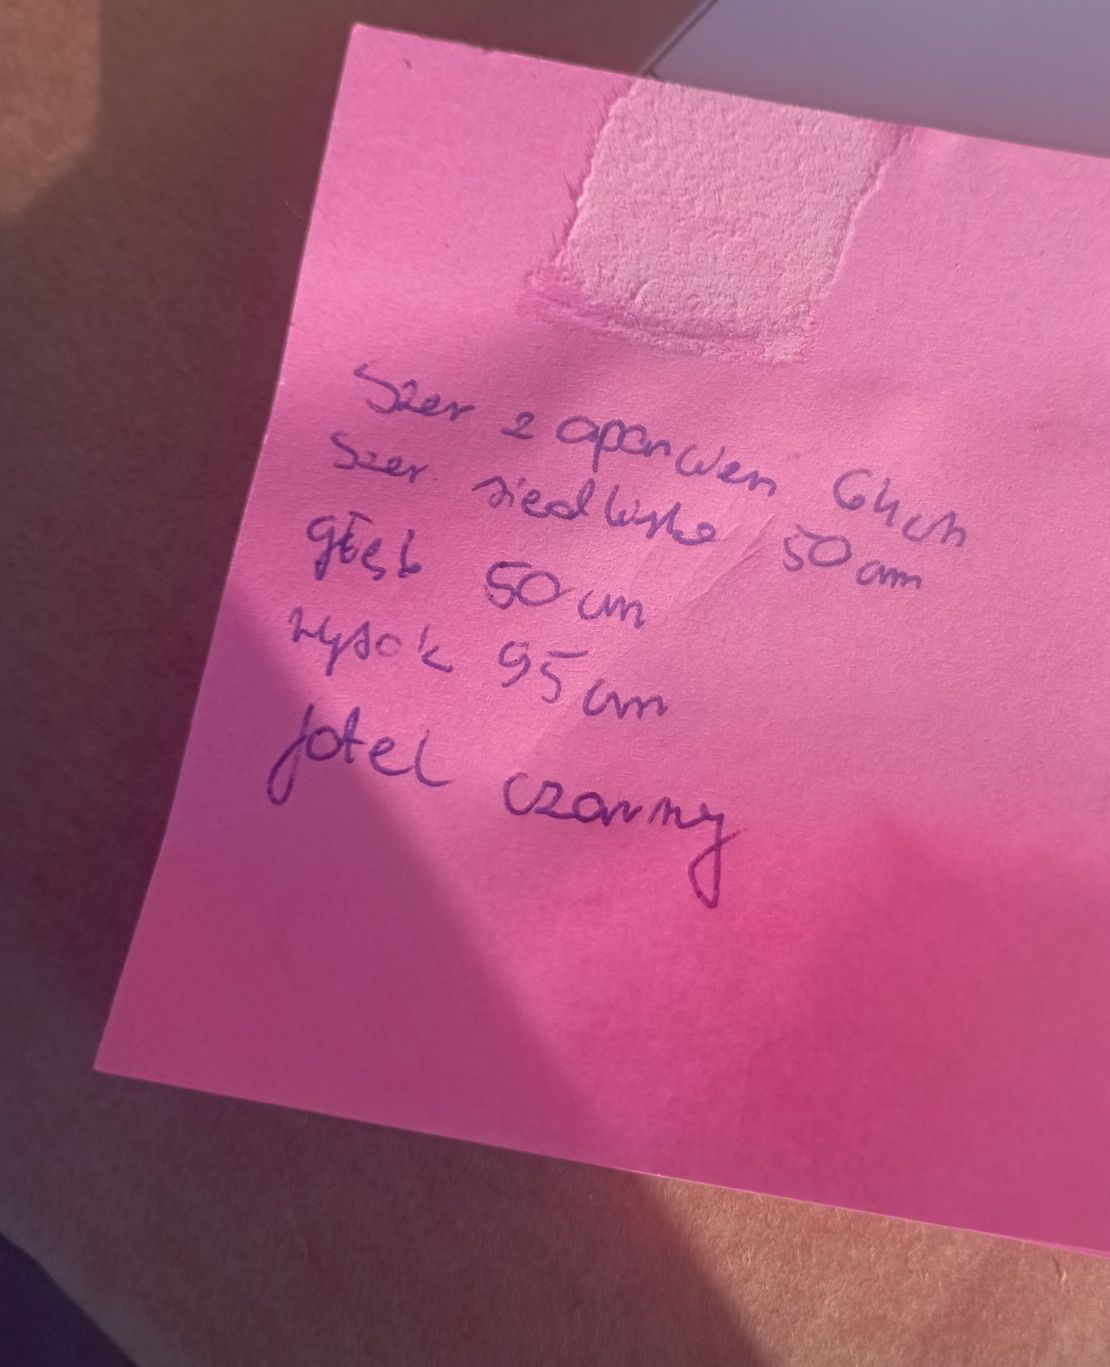 Szer z oparciem 64cm
Szer siedliska 50cm
głęb 50cm
wysok 95cm
fotel czarny